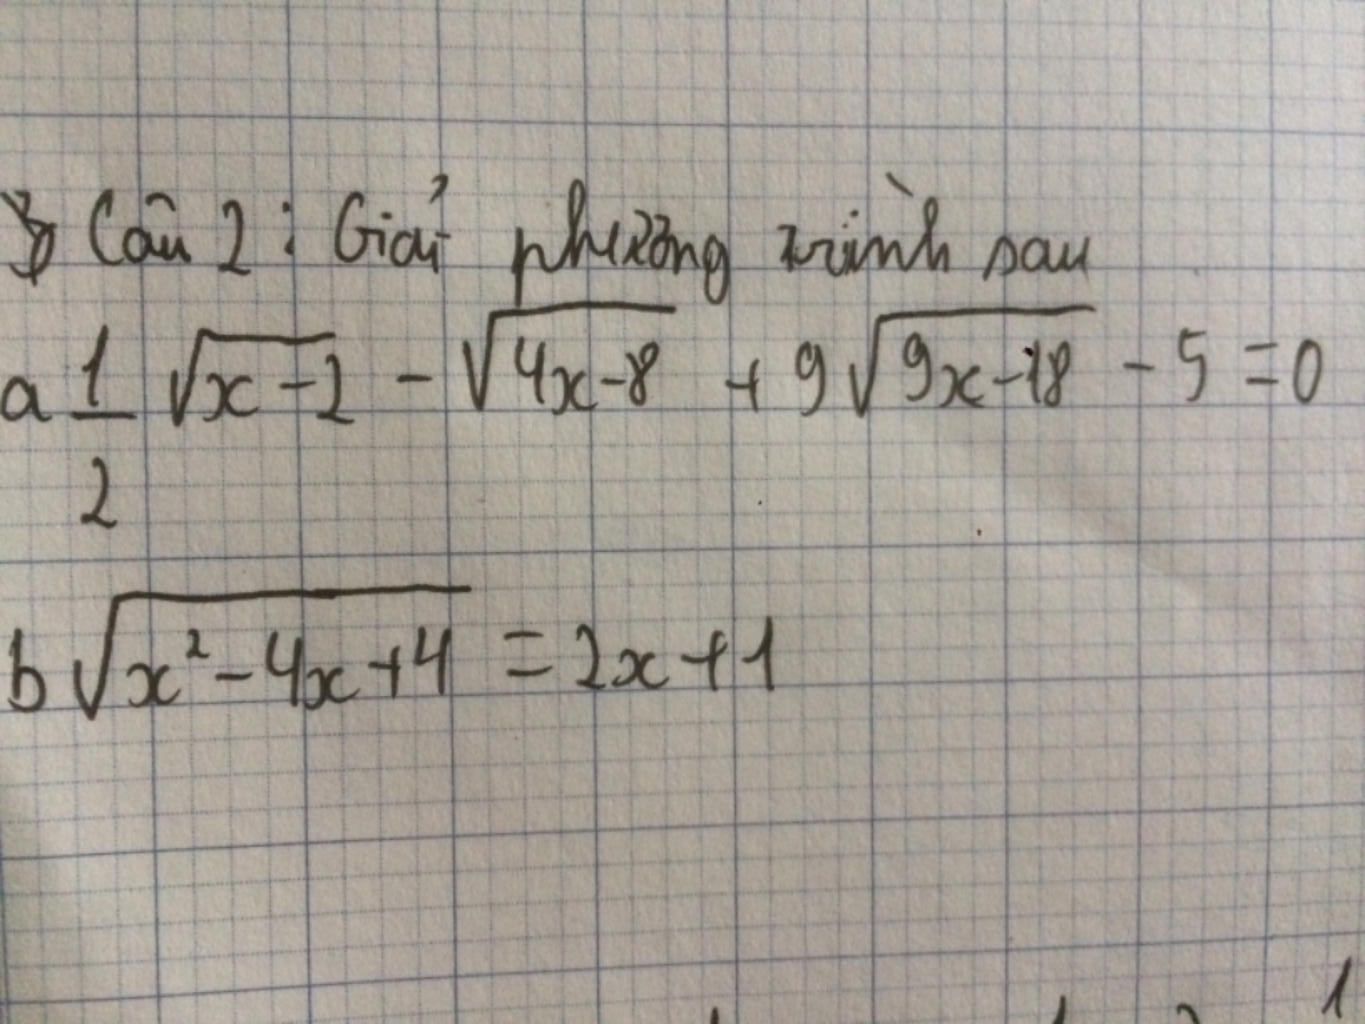 Câu 2: Giải phương trình sau
a 1/2 √(x-2) - √(4x-8) + 9√(9x-18) - 5 = 0
b √(x² - 4x + 4) = 2x + 1